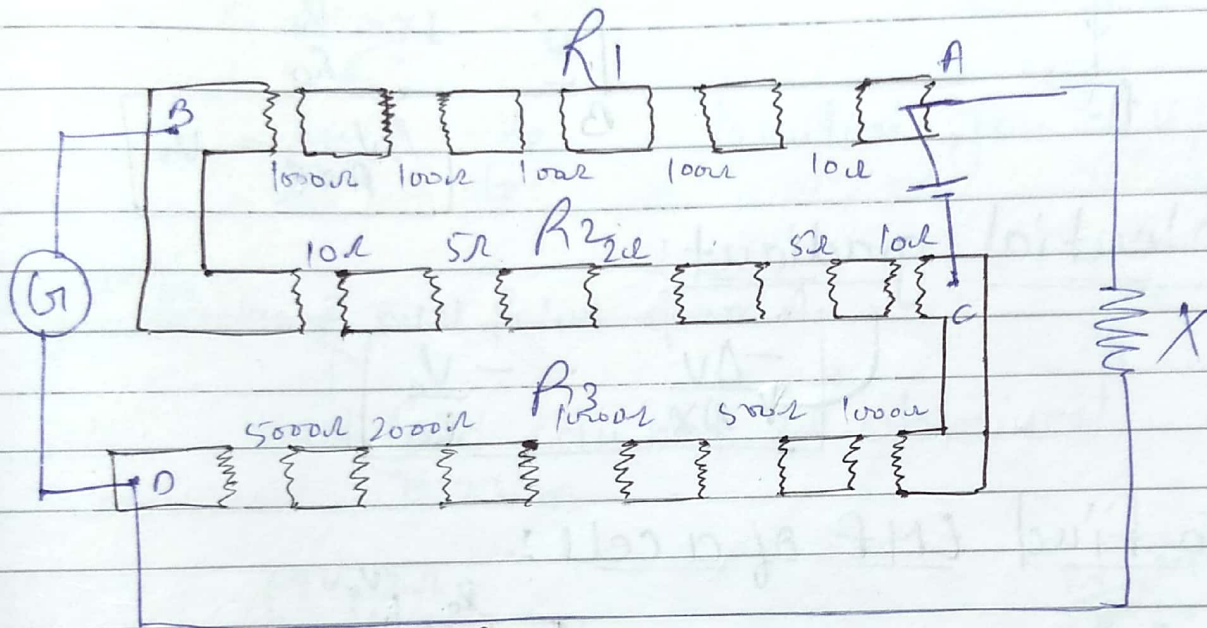 R1 A
B
1000Ω 100Ω 100Ω 100Ω 10Ω
10Ω 5Ω R2 2Ω 5Ω 10Ω
G
C
X
R3
5000Ω 2000Ω 1000Ω 500Ω 1000Ω
D